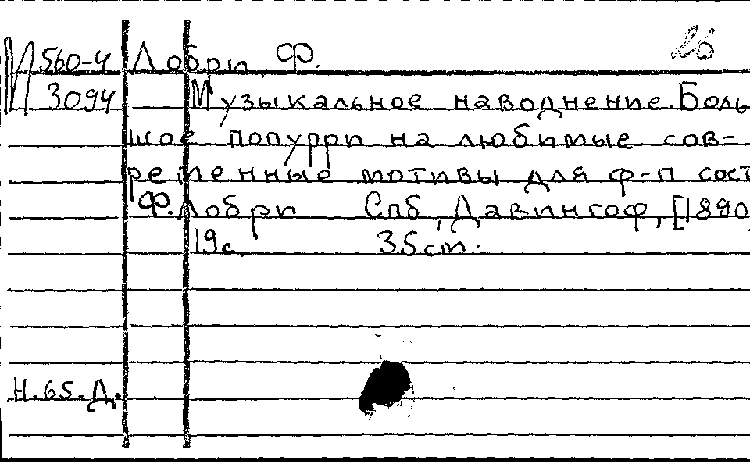 26
И 560-4 Лобри, Ф.
3094 Музыкальное наводнение. Боль
шое попурри на любимые сов-
ременные мотивы для ф-п сост
Ф. Лобри Спб, Давингоф, [1890
19с. 35cm.
Н.65.Д.